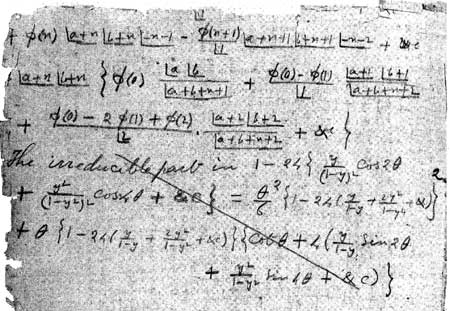 + φ(n) |a+n |b+n |-n-1 - φ(n+1)/|1 |a+n+1 |b+n+1 |-n-2 + &c
|a+n |b+n { φ(0) |a |b / |a+b+n+1 + φ(0) - φ(1)/|1 |a+1 |b+1 / |a+b+n+2
+ φ(0) - 2 φ(1) + φ(2)/|2 . |a+2 |b+2 / |a+b+n+3 + &c }
The irreducible part in 1 - 24 { y/(1-y)² cos 2θ
+ y²/(1-y²)² cos 4θ + &c } = θ²/6 { 1 - 24 ( y/1-y + 2y²/1-y² + &c ) }²
+ θ { 1 - 24 ( y/1-y + 2y²/1-y² + &c ) } { cot θ + 4 ( y/1-y sin 2θ
+ y²/1-y² sin 4θ + &c ) }